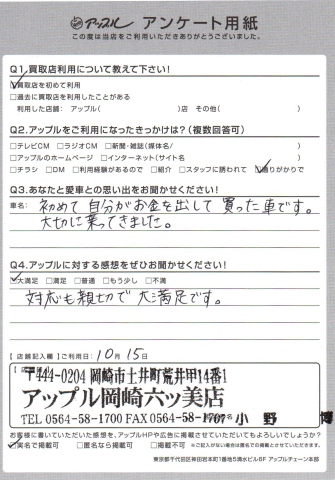 アップル アンケート用紙
この度は当店をご利用いただきありがとうございました。
Q1.買取店利用について教えて下さい!
☑買取店を初めて利用
□過去に買取店を利用したことがある
利用した店舗: アップル( )店 その他( )
Q2.アップルをご利用になったきっかけは?(複数回答可)
□テレビCM □ラジオCM □新聞・雑誌(媒体名/ )
□アップルのホームページ □インターネット(サイト名 )
□チラシ □DM □利用経験があるので □紹介 □スタッフに誘われて ☑通りがかりで
Q3.あなたと愛車との思い出をお聞かせください!
車名: 初めて自分がお金を出して買った車です。
大切に乗ってきました。
Q4.アップルに対する感想をぜひお聞かせください!
☑大満足 □満足 □普通 □もう少し □不満
対応も親切で大満足です。
【店舗記入欄】ご利用日: 10月15日
〒444-0204 岡崎市土井町荒井甲14番1
アップル岡崎六ッ美店
TEL 0564-58-1700 FAX 0564-58-1707 小野 博
お客様に書いていただいた感想を、アップルHPや広告に掲載させていただいてもよろしいでしょうか?
☑実名で掲載可 □匿名なら掲載可 □掲載不可 ※ご記入がない場合は匿名での掲載とさせていただきます。
東京都千代田区神田岩本町1番地5清水ビル6F アップルチェーン本部